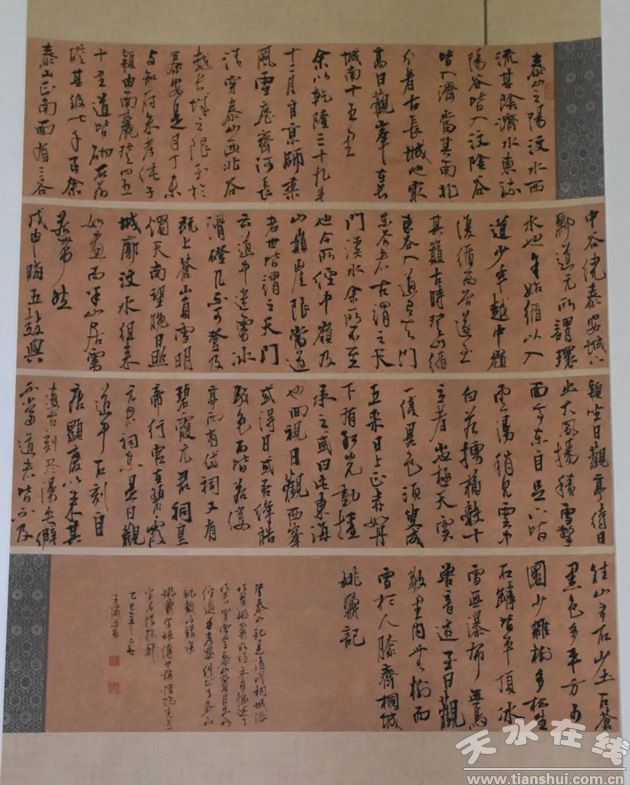 泰山之陽汶水西
流其陰濟水東流
陽谷皆入汶陰谷
皆入濟當其南北
分者古長城也最
高日觀峯在長
城南十五里
余以乾隆三十九年
十二月自京師乘
風雪歷齊河長
清穿泰山西北谷
越長城之限至於
泰安是月丁未
與知府朱孝純子
潁由南麓登四五
十里道皆砌石為
磴其級七千有餘
泰山正南面有三谷
中谷繞泰安城下
酈道元所謂環
水也余始循以入
道少半越中嶺
復循西谷遂至
其巔古時登山循
東谷入道有天門
東谷者古謂之天
門溪水余所不至
也今所經中嶺及
山巔崖限當道
者世皆謂之天門
云道中迷霧冰
滑磴幾不可登及
既上蒼山負雪明
燭天南望晚日照
城郭汶水徂徠
如畫而半山居霧
若帶然
戊申晦五鼓與
潁坐日觀亭待日
出大風揚積雪擊
面亭東自足下皆
雲漫稍見雲中
白若摴蒱數十
立者山也極天雲
一線異色須臾成
五采日上正赤如丹
下有紅光動搖
承之或曰此東海
也回視日觀西峯
或得日或否絳皓
駁色而皆若僂
亭西有岱祠又有
碧霞元君祠皇
帝行宮在碧霞
元君祠東是日觀
道中石刻自
唐顯慶以來其
遠古刻盡漫失僻
不當道者皆不及
往山多石少土石蒼
黑色多平方少
圜少雜樹多松生
石罅皆平頂冰
雪無瀑布無鳥
獸音迹至日觀
數里內無樹而
雪與人膝齊桐城
姚鼐記
天水在线
www.tianshui.com.cn